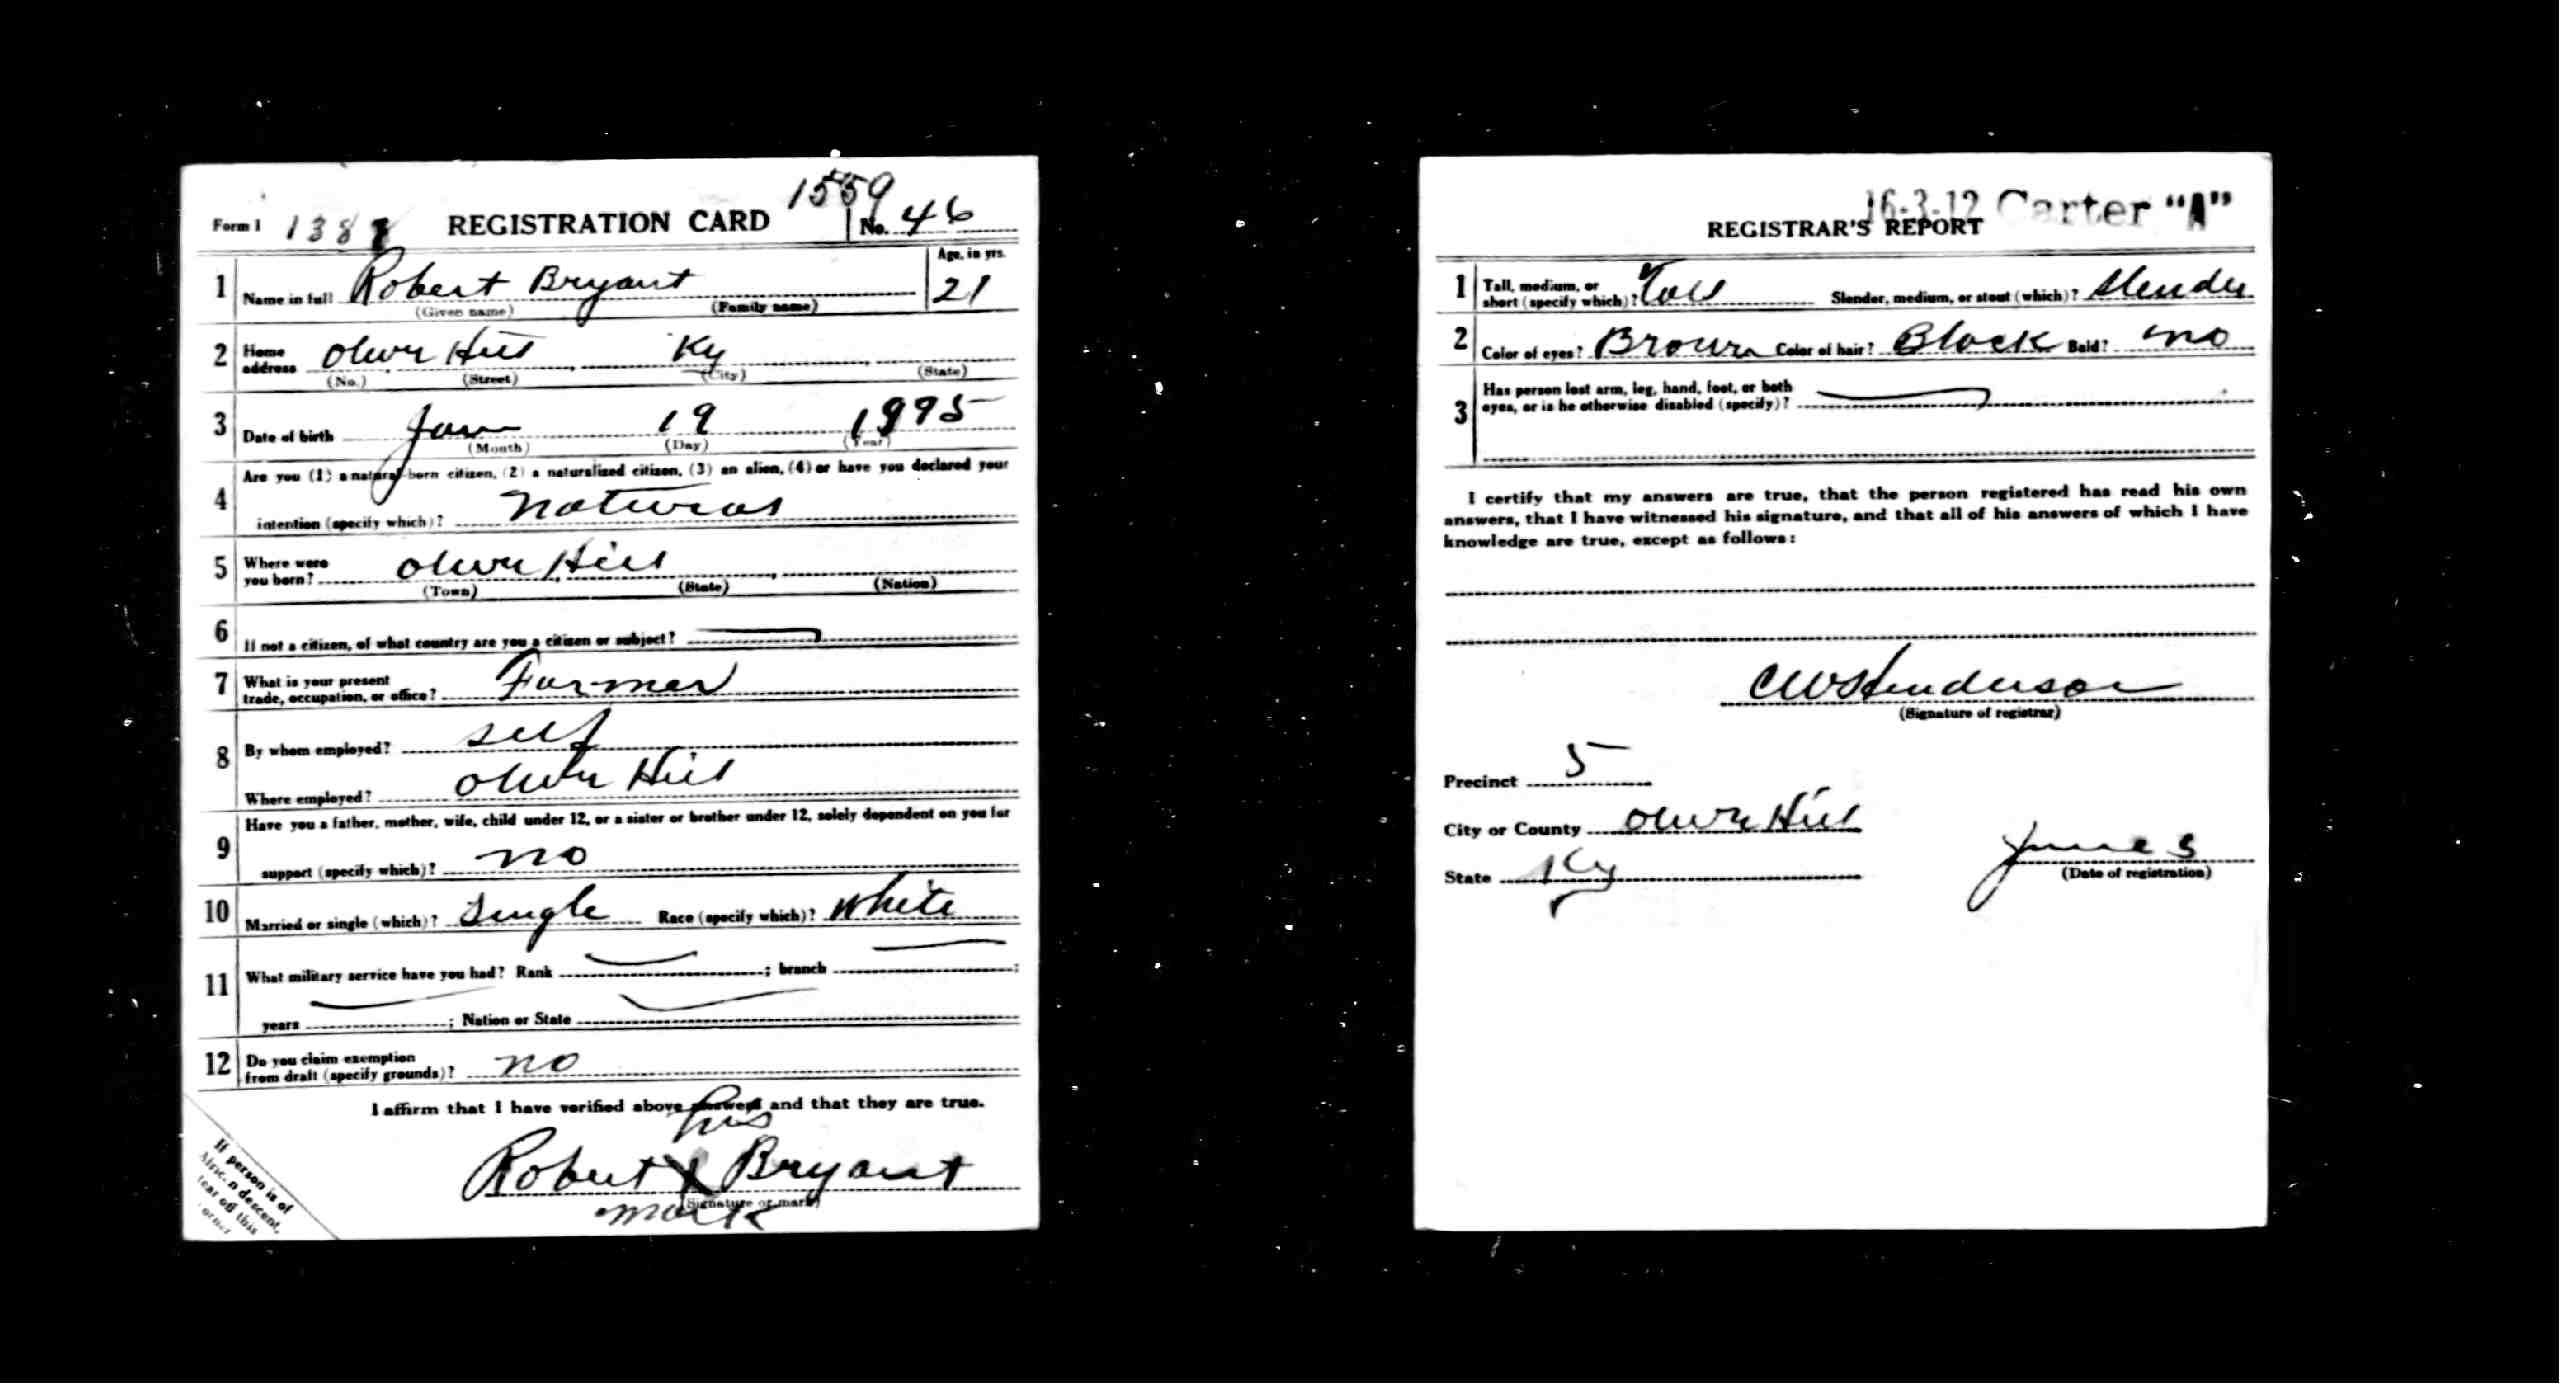 1559
Form 1 138 REGISTRATION CARD No. 46
Age, in yrs.
1 Name in full Robert Bryant 21
(Given name) (Family name)
2 Home address Olive Hill Ky
(No.) (Street) (City) (State)
3 Date of birth Jan 19 1895
(Month) (Day) (Year)
Are you (1) a natural-born citizen, (2) a naturalized citizen, (3) an alien, (4) or have you declared your
4 intention (specify which)? natural
5 Where were you born? Olive Hill
(Town) (State) (Nation)
6 If not a citizen, of what country are you a citizen or subject?
7 What is your present trade, occupation, or office? Farmer
8 By whom employed? self
Where employed? Olive Hill
Have you a father, mother, wife, child under 12, or a sister or brother under 12, solely dependent on you for
9 support (specify which)? no
10 Married or single (which)? Single Race (specify which)? White
11 What military service have you had? Rank ; branch ;
years ; Nation or State
12 Do you claim exemption from draft (specify grounds)? no
I affirm that I have verified above answers and that they are true.
his
Robert X Bryant
(Signature or mark)
mark
If person is of
African descent,
tear off this
corner
16-3-12 Carter "A"
REGISTRAR'S REPORT
1 Tall, medium, or short (specify which)? Tall Slender, medium, or stout (which)? Slender
2 Color of eyes? Brown Color of hair? Black Bald? no
3 Has person lost arm, leg, hand, foot, or both eyes, or is he otherwise disabled (specify)?
I certify that my answers are true, that the person registered has read his own
answers, that I have witnessed his signature, and that all of his answers of which I have
knowledge are true, except as follows:
CW Henderson
(Signature of registrar)
Precinct 5
City or County Olive Hill
State Ky
June 5
(Date of registration)